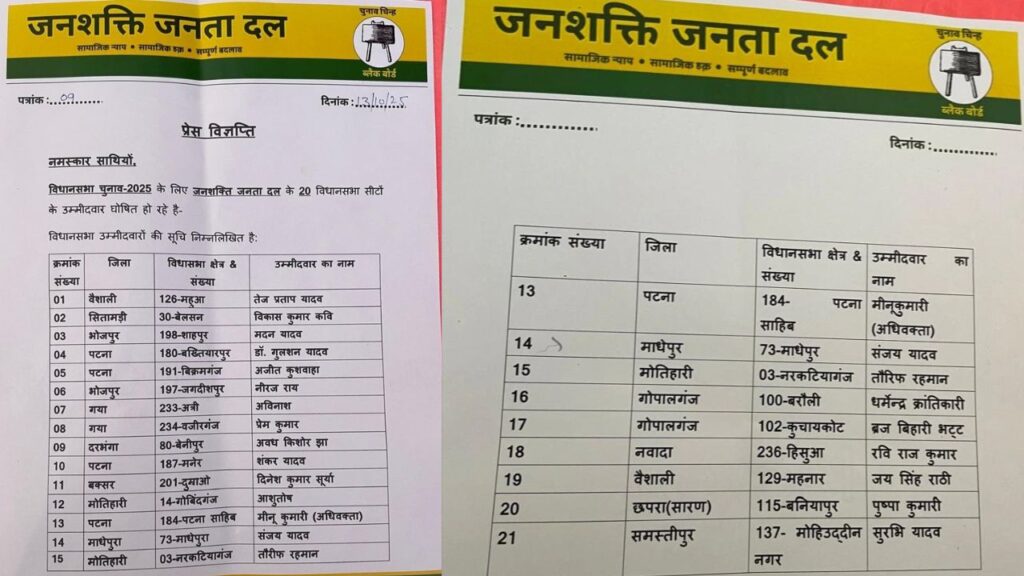 जनशक्ति जनता दल
सामाजिक न्याय • सामाजिक हक़ • सम्पूर्ण बदलाव
चुनाव चिन्ह
ब्लैक बोर्ड
पत्रांक :..09..........
दिनांक :.13/10/25
प्रेस विज्ञप्ति
नमस्कार साथियों,
विधानसभा चुनाव-2025 के लिए जनशक्ति जनता दल के 20 विधानसभा सीटों
के उम्मीदवार घोषित हो रहे है-
विधानसभा उम्मीदवारों की सूचि निम्नलिखित है:
क्रमांक संख्या जिला विधासभा क्षेत्र & संख्या उम्मीदवार का नाम
01 वैशाली 126-महुआ तेज प्रताप यादव
02 सितामड़ी 30-बेलसन विकास कुमार कवि
03 भोजपुर 198-शाहपुर मदन यादव
04 पटना 180-बख्तियारपुर डॉ. गुलशन यादव
05 पटना 191-बिक्रमगंज अजीत कुशवाहा
06 भोजपुर 197-जगदीशपुर नीरज राय
07 गया 233-अत्री अविनाश
08 गया 234-वजीरगंज प्रेम कुमार
09 दरभंगा 80-बेनीपुर अवध किशोर झा
10 पटना 187-मनेर शंकर यादव
11 बक्सर 201-दुमाओ दिनेश कुमार सूर्या
12 मोतिहारी 14-गोबिंदगंज आशुतोष
13 पटना 184-पटना साहिब मीनू कुमारी (अधिवक्ता)
14 माधेपुरा 73-माधेपुरा संजय यादव
15 मोतिहारी 03-नरकटियागंज तौरीफ रहमान
जनशक्ति जनता दल
सामाजिक न्याय • सामाजिक हक़ • सम्पूर्ण बदलाव
चुनाव चिन्ह
ब्लैक बोर्ड
पत्रांक :..............
दिनांक :.............
क्रमांक संख्या जिला विधानसभा क्षेत्र & संख्या उम्मीदवार का नाम
13 पटना 184- पटना साहिब मीनूकुमारी (अधिवक्ता)
14 माधेपुर 73-माधेपुर संजय यादव
15 मोतिहारी 03-नरकटियागंज तौरिफ रहमान
16 गोपालगंज 100-बरौली धर्मेन्द्र क्रांतिकारी
17 गोपालगंज 102-कुचायकोट ब्रज बिहारी भट्ट
18 नवादा 236-हिसुआ रवि राज कुमार
19 वैशाली 129-महनार जय सिंह राठी
20 छपरा(सारण) 115-बनियापुर पुष्पा कुमारी
21 समस्तीपुर 137- मोहिउद्दीन नगर सुरभि यादव